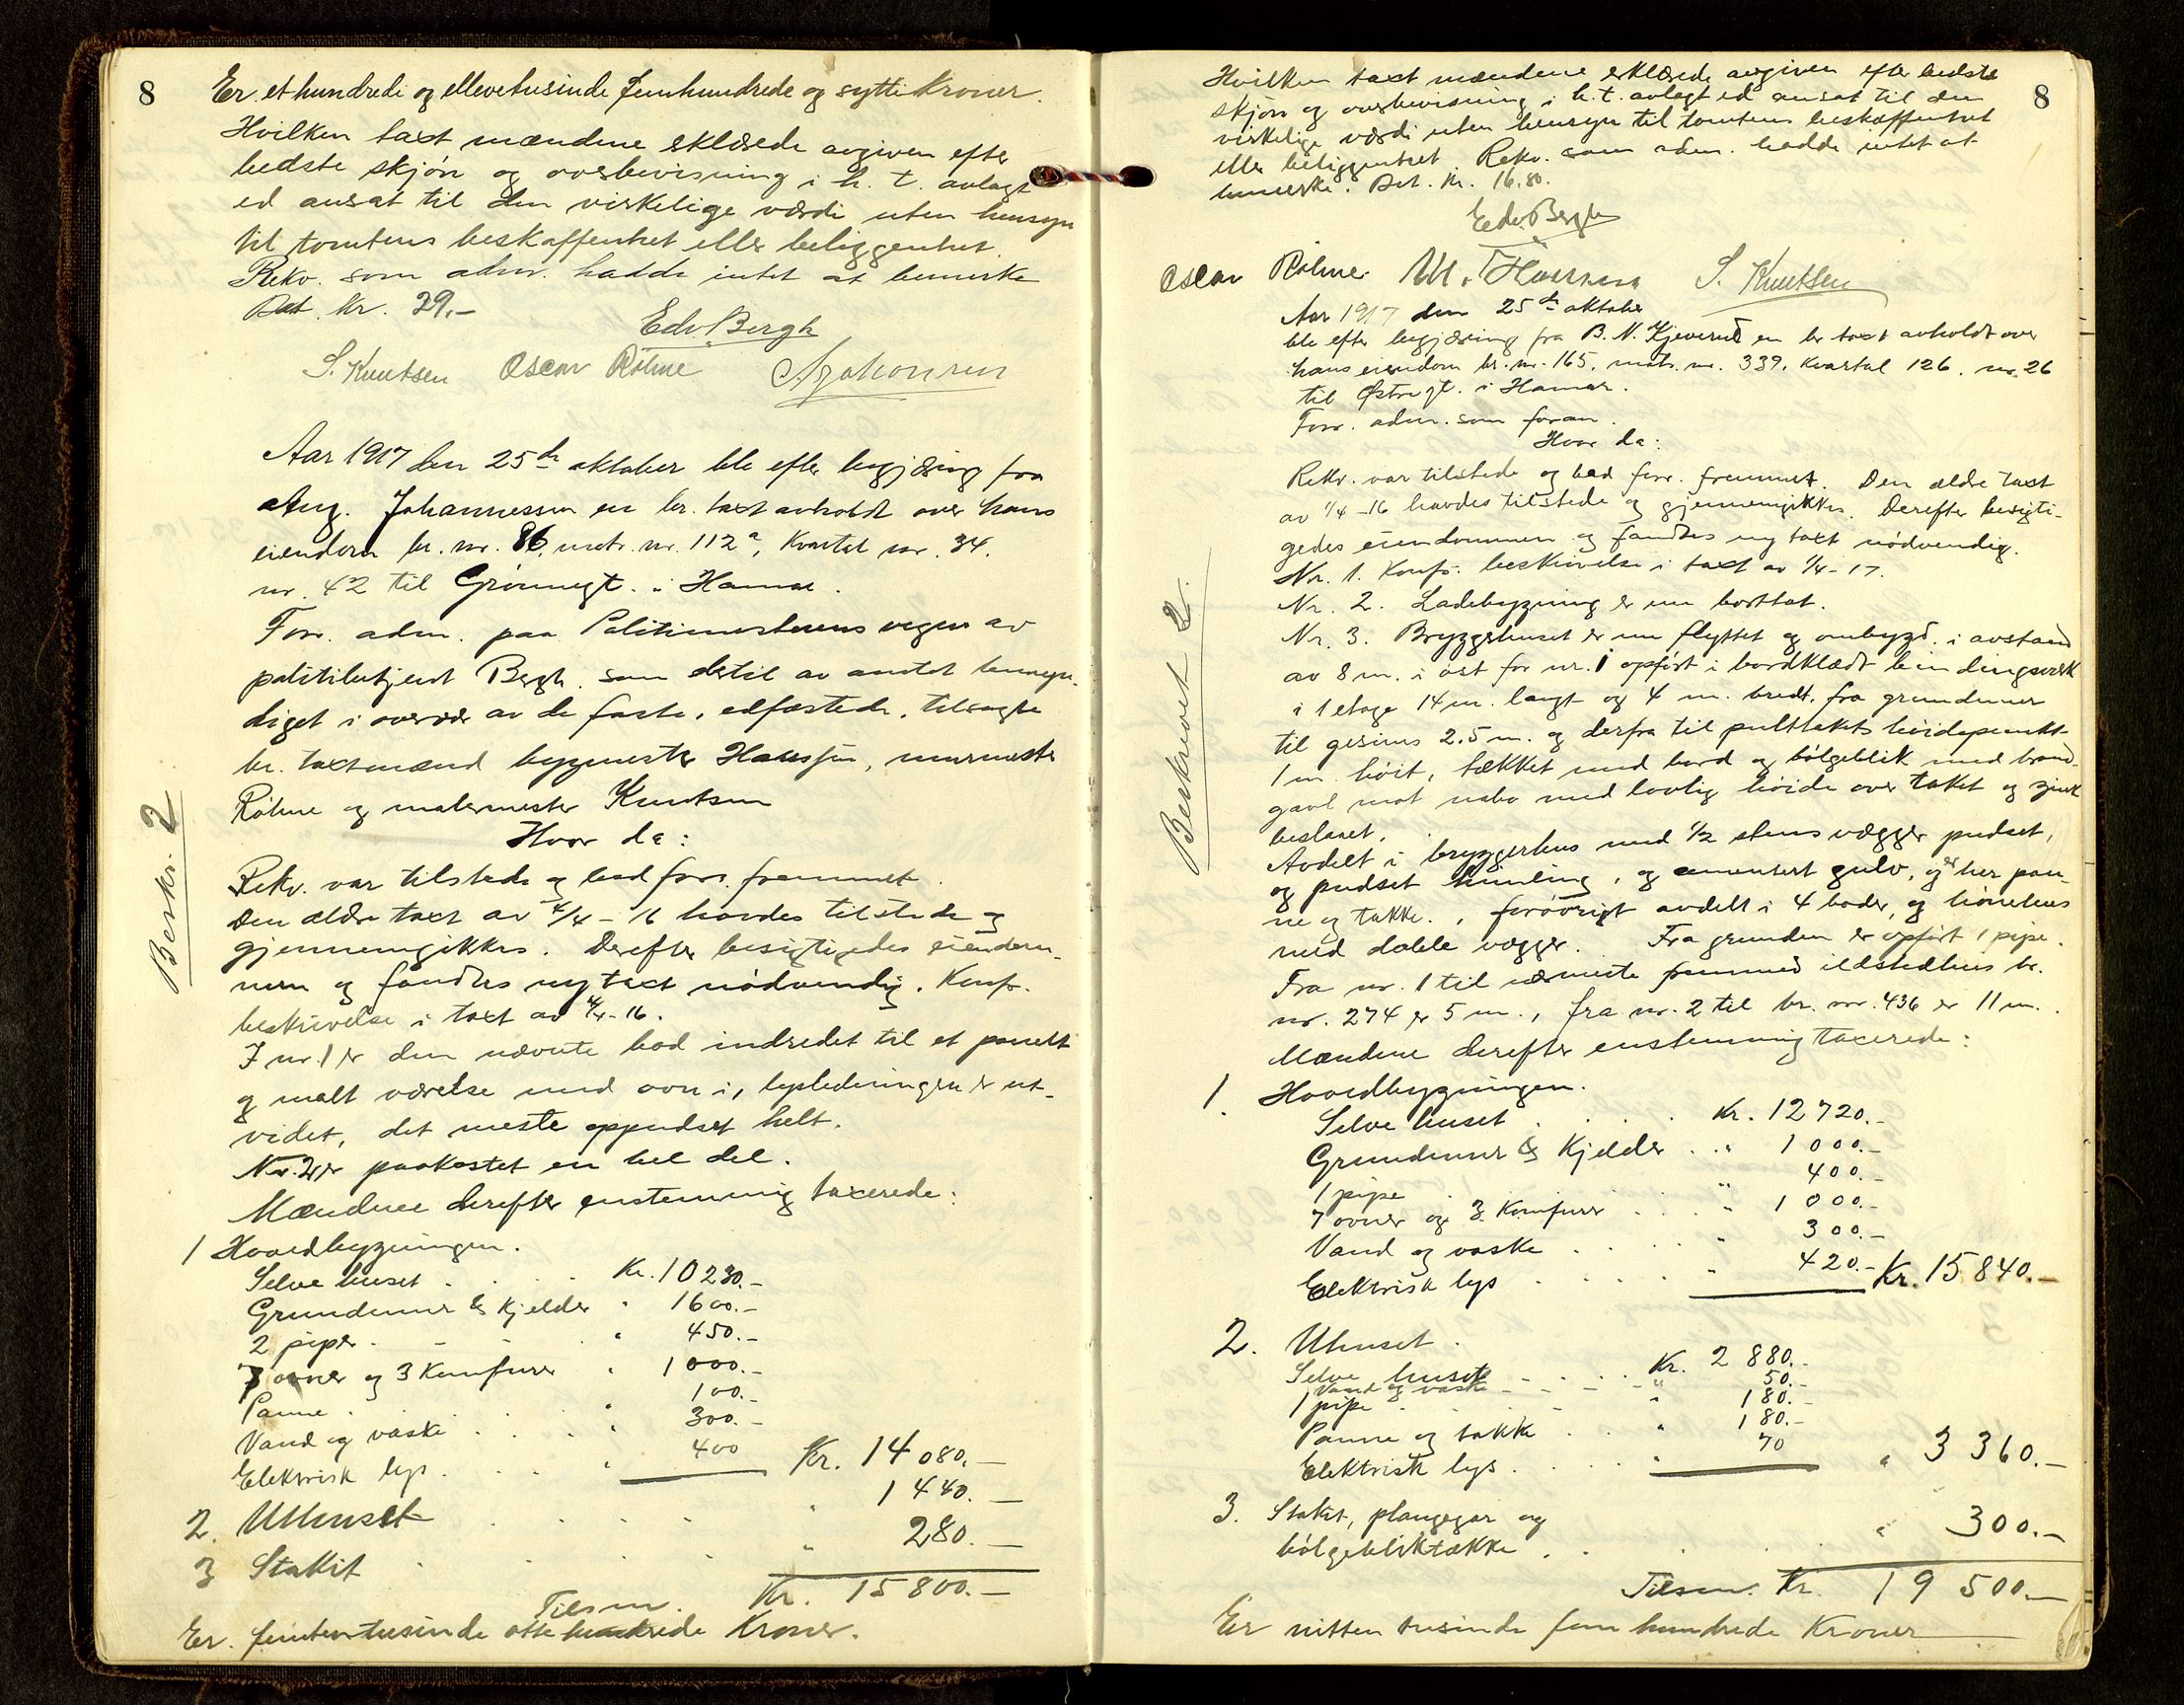 8
Er et hundrede og ellevetusinde femhundrede og sytti Kroner.
Hvilken taxt mændene erklærede avgiven efter
bedste skjøn og overbevisning i h. t. avlagt
ed ansat til den virkelige værdi uten hensyn
til tomtens beskaffenhet eller beliggenhet.
Rekv. som adm. hadde intet at bemerke
Bet. kr. 29.-
Edv. Bergh
S. Knutsen Oscar Röhne
Aar 1917 den 25de oktober ble efter begjæring fra
Aug. Johannessen en br. taxt avholdt over hans
eiendom br. nr. 86, matr. nr. 112a, Kvartal nr. 34.
nr. 42 til Grønnegt. i Hamar.
Forr. adm. paa Politimesterens vegne av
politibetjent Bergh. som dertil av amtet bemyn-
diget i overvær av de faste, edfæstede, tilsagte
br. taxtmænd bygmester Hanssen, murmester
Röhne og malermester Knutsen
Hvor da:
Rekv. var tilstede og bad forr. fremmet.
Den ældre taxt av 4/4 - 16 havdes tilstede og
gjennemgikkes. Derefter besigtigedes eiendom-
men og fandtes ny taxt nødvendig. Konf.
beskrivelse i taxt av 4/4 - 16.
I nr. 1 er den nævnte bod indredet til et panelt
og malt værelse med ovn i, lysledningen er ut-
videt, det meste oppudset helt.
Nr. 2 er paakostet en hel del.
Mændene derefter enstemmig taxerede:
1 Hovedbygningen.
Selve huset . . . Kr. 10 230.-
Grundmur & Kjelder " 1600.-
2 piper . - - " 450.-
7 ovner og 3 Komfurer " 1000.-
Panne . " 100.-
Vand og vaske . . . " 300.-
Elektrisk lys . . . " 400 Kr. 14 080.-
2. Uthuset . . . . " 1 440.-
3 Stakit . . . . " 280.-
Tilsm. Kr. 15 800.-
Er femtentusinde otte hundrede Kroner.
Beskr. 2
8
Hvilken taxt mændene erklærede avgiven efter bedste
skjøn og overbevisning i h. t. avlagt ed ansat til den
virkelige værdi uten hensyn til tomtens beskaffenhet
eller beliggenhet. Rekv. som adm. hadde intet at
bemerke. Bet. Kr. 16.80.
Edv. Bergh
Oscar Röhne M. Hanssen S. Knutsen
Aar 1917 den 25de oktober
ble efter begjæring fra B. N. Kjeverud en br. taxt avholdt over
hans eiendom br. nr. 165, matr. nr. 339, Kvartal 126, nr. 26
til Østregt. i Hamar.
Forr. adm. som foran.
Hvor da:
Rekv. var tilstede og bad forr. fremmet. Den ældre taxt
av 1/4 - 16 havdes tilstede og gjennemgikkes. Derefter besigti-
gedes eiendommen og fandtes ny taxt nødvendig.
Nr. 1. Konf. beskrivelse i taxt av 1/4 - 17.
Nr. 2. Ladebygning er nu borttat.
Nr. 3. Bryggerhuset er nu flyttet og ombygd i avstand
av 8 m. i øst for nr. 1 opført i bordklædt bindingsverk
i 1 etage 14 m. langt og 4 m. bredt. fra grundmur
til gesims 2.5 m. og derfra til pulttakets høidepunkt
1 m. høit, tækket med bord og bølgeblik med brand-
gavl mot nabo med lovlig høide over taket og zink
beslaaet.
Avdelt i bryggerhus med 1/2 stens vægger pudset,
og pudset himling, og cementert gulv, og er her pan-
ne og takke. , forøvrigt avdelt i 4 boder, og hønehus
med doble vægger. Fra grunden er opført 1 pipe.
Fra nr. 1 til nærmeste fremmed ildstedhus br.
nr. 274 er 5 m., fra nr. 2 til br. nr. 436 er 11 m.
Mændene derefter enstemmig taxerede:
1. Hovedbygningen.
Selve huset . . . . Kr. 12 720.-
Grundmur & Kjelder . . " 1 000.-
1 pipe " 400.-
7 ovner og 3 Komfurer . . . " 1 000.-
Vand og vaske . . . " 300.-
Elektrisk lys . . . . " 420.- Kr. 15 840.-
2. Uthuset.
Selve huset - . . . Kr. 2 880.-
Vand og vaske - - - " 50.-
1 pipe . . . " 180.-
Panne og takke . . " 180.-
Elektrisk lys . . . " 70 " 3 360.-
3. Stakit, plangegar og
bølgebliktække . . . . " 300.-
Tilsm. Kr. 19 500.-
Er nitten tusinde fem hundrede Kroner
Beskrevet 2.